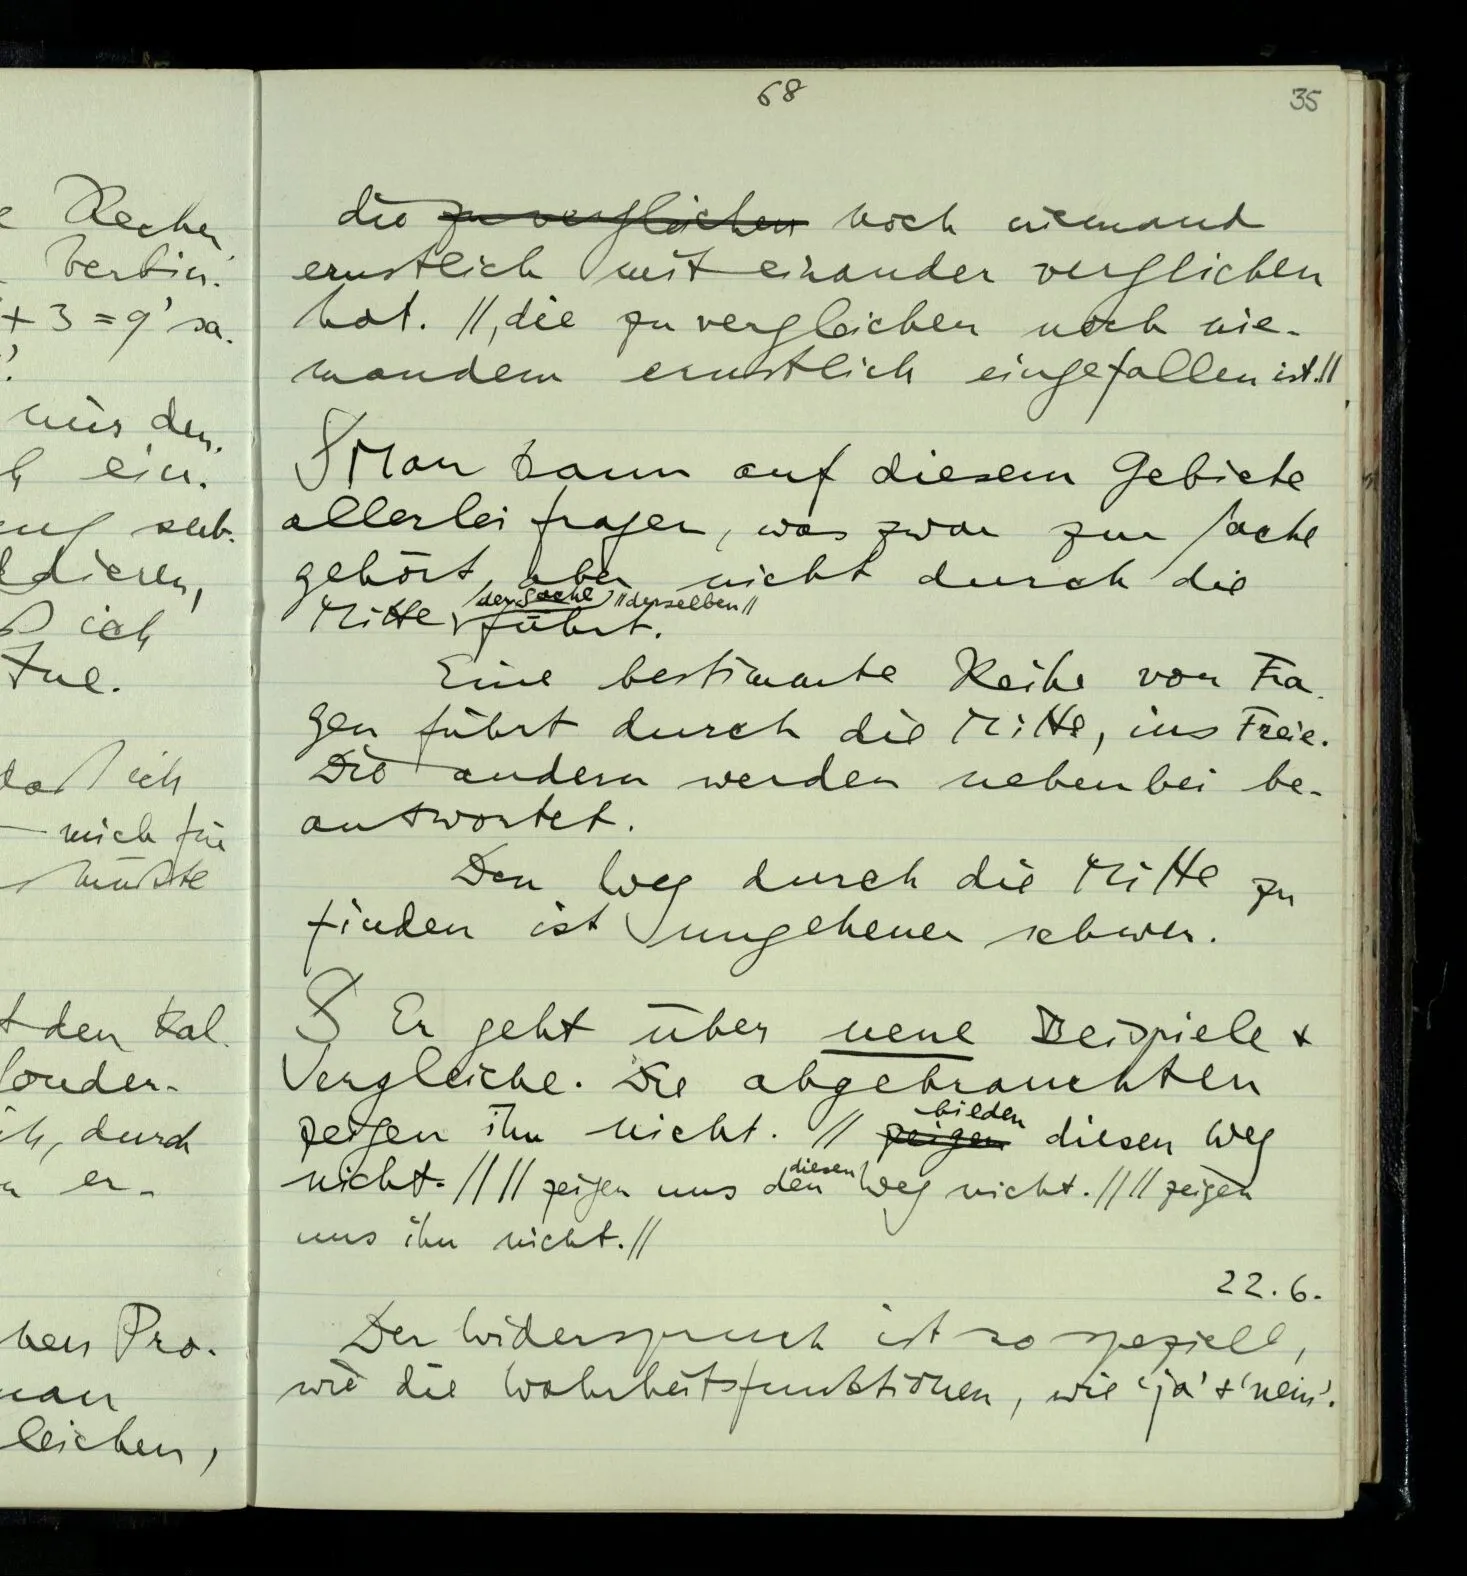 e Rechen
verbin-
+ 3 = 9' sa-
'.
mir den
h ein-
ung sub-
ldieren,
ß ich
tue.
daß ich
— mich für
müßte
t den Kal-
sonder-
ich, durch
n er-
hen Pro-
man
leichen,
68
35
die zu vergleichen noch niemand
ernstlich mit einander verglichen
hat. //, die zu vergleichen noch nie-
mandem ernstlich eingefallen ist.//
§ Man kann auf diesem Gebiete
allerlei fragen, was zwar zur Sache
gehört, aber nicht durch die
der Sache //derselben//
Mitte führt.
Eine bestimmte Reihe von Fra-
gen führt durch die Mitte, ins Freie.
Die andern werden nebenbei be-
antwortet.
Den Weg durch die Mitte zu
finden ist ungeheuer schwer.
§ Er geht über neue Beispiele +
Vergleiche. Die abgebrauchten
bilden
zeigen ihn nicht. // zeigen diesen Weg
diesen
nicht.// // zeigen uns den Weg nicht.// // zeigen
uns ihn nicht.//
22.6.
Der Widerspruch ist so speziell,
wie die Wahrheitsfunktionen, wie 'ja' + 'nein'.